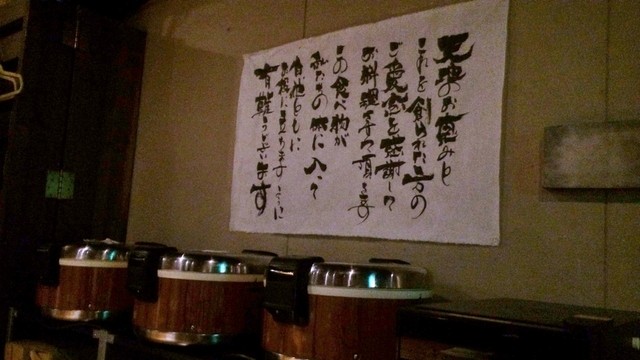 天地のお恵みと
これを創られた方の
ご愛念を感謝して
お料理をすべて頂きます
この食べ物が
私たちの体に入って
自他ともに
お役に立ちますように
有難うございます